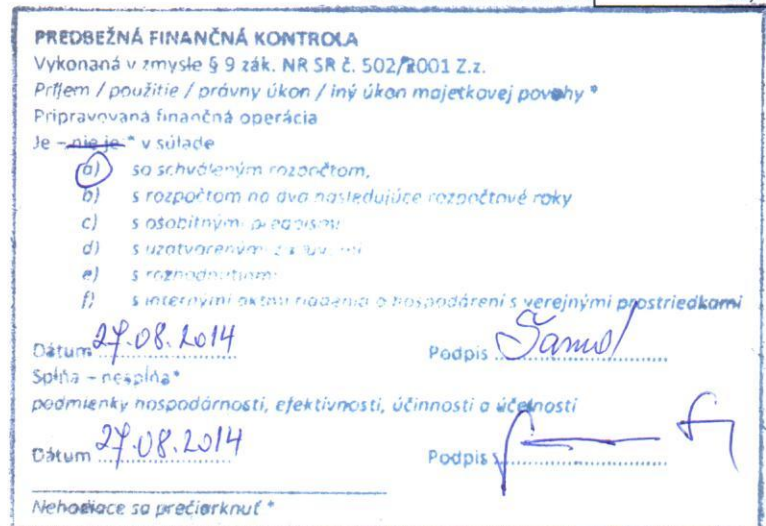 PREDBEŽNÁ FINANČNÁ KONTROLA
Vykonaná v zmysle § 9 zák. NR SR č. 502/2001 Z.z.
Príjem / použitie / právny úkon / iný úkon majetkovej povahy *
Pripravovaná finančná operácia
Je – nie je * v súlade
a) so schváleným rozpočtom,
b) s rozpočtom na dva nasledujúce rozpočtové roky
c) s osobitnými predpismi
d) s uzatvorenými zmluvami
e) s rozhodnutiami
f) s internými aktmi riadenia o hospodárení s verejnými prostriedkami
Dátum 27.08.2014 Podpis
Spĺňa – nespĺňa*
podmienky hospodárnosti, efektívnosti, účinnosti a účelnosti
Dátum 27.08.2014 Podpis
Nehodiace sa prečiarknuť *